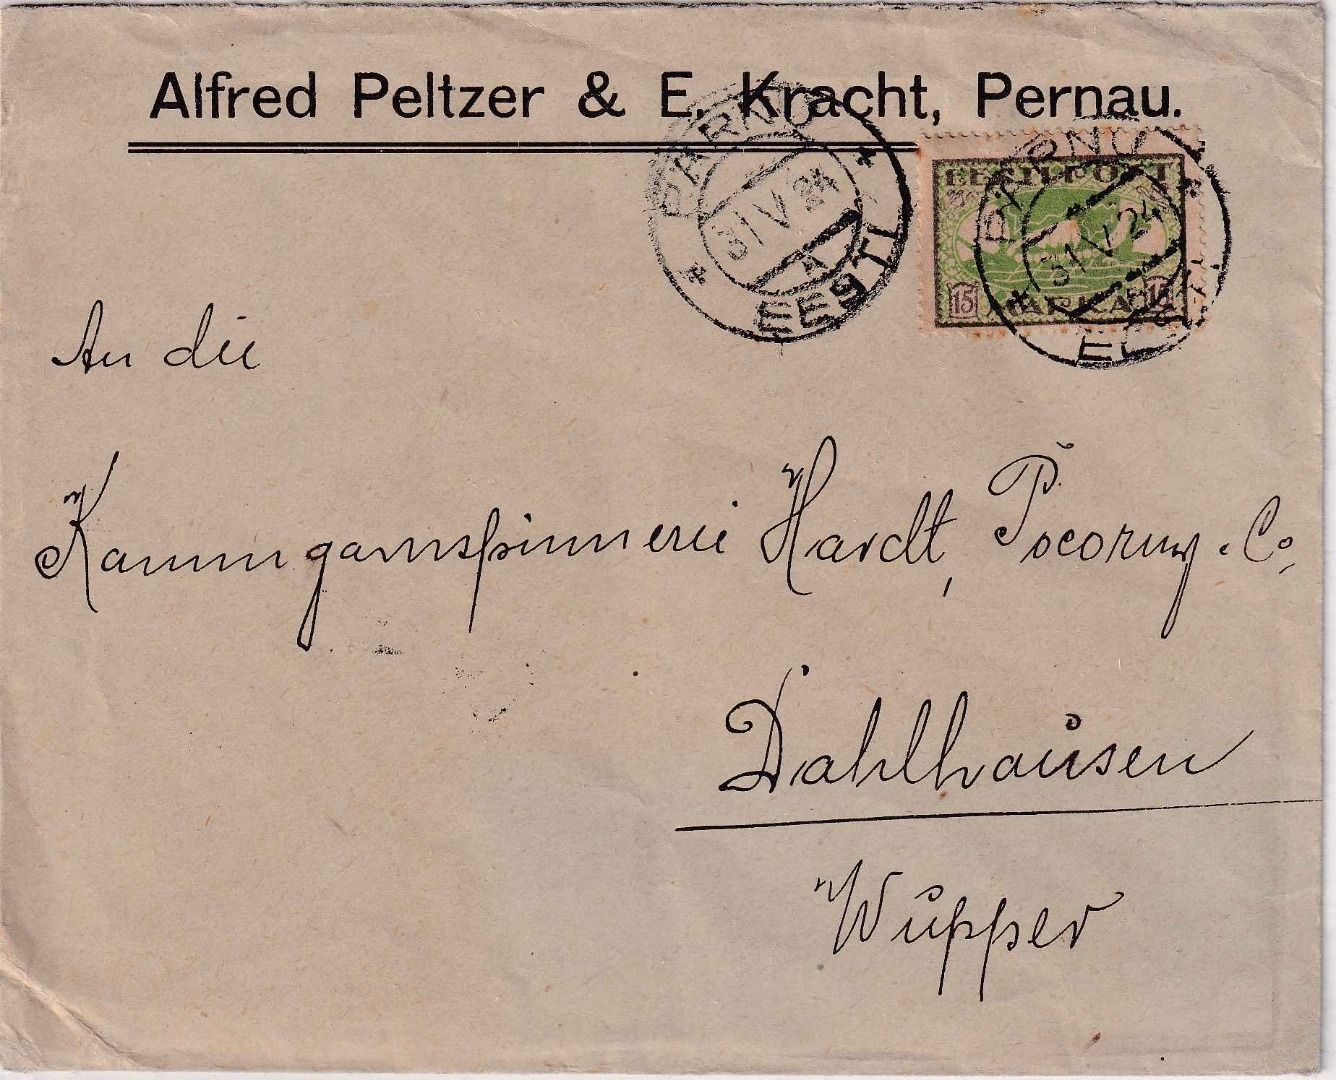 Alfred Peltzer & E. Kracht, Pernau.
PÄRNU
31 V 24
A
EESTI
EESTI POST
15 MARKA 15
PÄRNU
31 V 24
EESTI
An die
Kammgarnspinnerei Hardt, Pocorny. Co,
Dahlhausen
Wupper